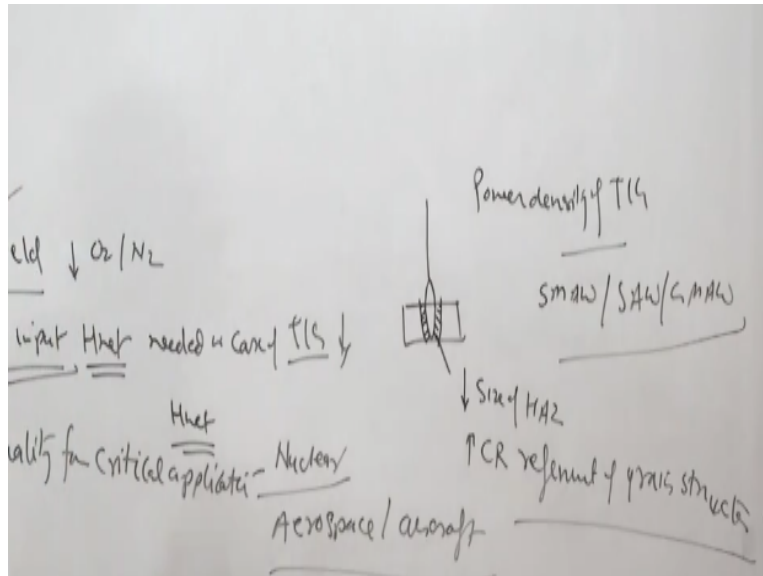 eld ↓ O2/N2
input Hnet needed in case of TIG ↓
Hnet
ality for Critical applicati- Nuclear
Aerospace / aircraft
Power density of TIG
SMAW/SAW/GMAW
↓ Size of HAZ
↑ CR refinement of grain structure